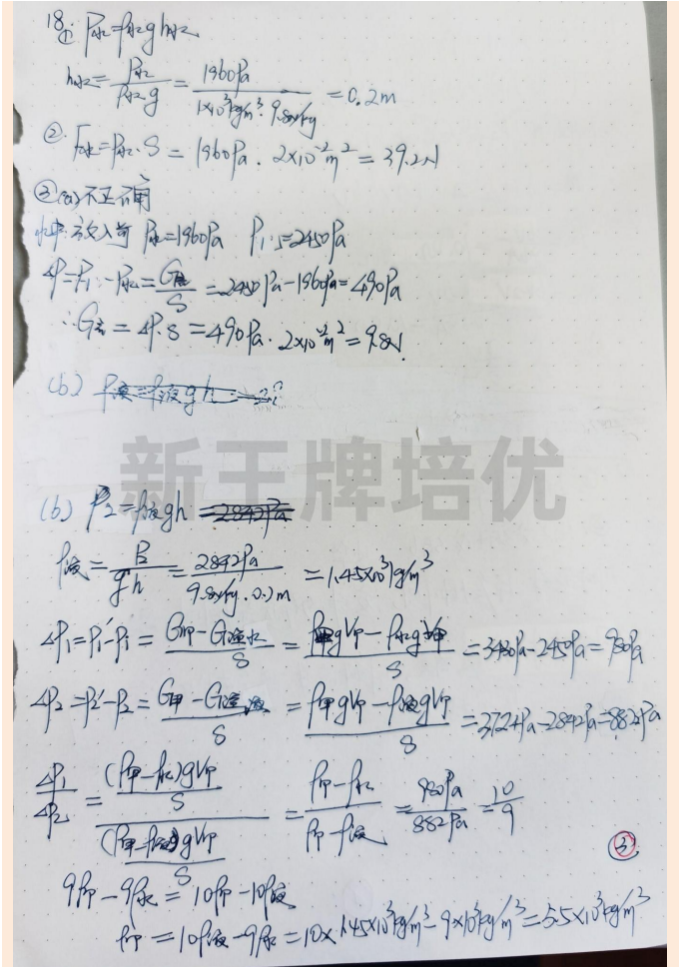 18. ① P水=ρ水gh水
h水=P水/ρ水g=1960Pa/1×10³kg/m³·9.8N/kg=0.2m
②. F水=P水·S=1960Pa·2×10⁻²m²=39.2N
③(a)不正确
水中:放入前 P水=1960Pa P₁=2450Pa
ΔP=P₁-P水=G/S=2450Pa-1960Pa=490Pa
∴G=ΔP·S=490Pa·2×10⁻²m²=9.8N.
(b) P液=ρ液gh=
新王牌培优
(b) P₂=ρ液gh=2842Pa
ρ液=P₂/gh=2842Pa/9.8N/kg·0.2m=1.45×10³kg/m³
ΔP₁=P₁'-P₁=G甲-G溢水/S=ρ甲gV甲-ρ水gV甲/S=3430Pa-2450Pa=980Pa
ΔP₂=P₂'-P₂=G甲-G溢液/S=ρ甲gV甲-ρ液gV甲/S=3724Pa-2842Pa=882Pa
ΔP₁/ΔP₂=(ρ甲-ρ水)gV甲/S/(ρ甲-ρ液)gV甲/S=ρ甲-ρ水/ρ甲-ρ液=980Pa/882Pa=10/9
③
9ρ甲-9ρ水=10ρ甲-10ρ液
ρ甲=10ρ液-9ρ水=10×1.45×10³kg/m³-9×10³kg/m³=5.5×10³kg/m³